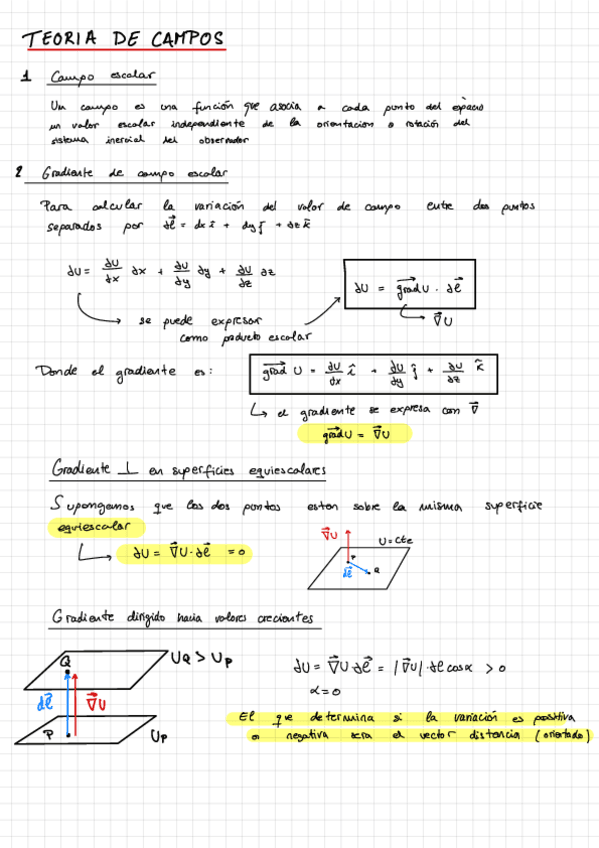 TEORIA DE CAMPOS
1 Campo escalar
Un campo es una función que asocia a cada punto del espacio
un valor escalar independiente de la orientacion o rotación del
sistema inercial del observador
2 Gradiente de campo escalar
Para calcular la variación del valor de campo entre dos puntos
separados por dℓ⃗ = dx î + dy ĵ + dz k̂
∂U = ∂U/∂x ∂x + ∂U/∂y ∂y + ∂U/∂z ∂z
∂U = grad⃗ U · ∂ℓ⃗
∇⃗U
se puede expresar
como producto escalar
Donde el gradiente es:
grad⃗ U = ∂U/∂x î + ∂U/∂y ĵ + ∂U/∂z k̂
el gradiente se expresa con ∇⃗
grad⃗ U = ∇⃗U
Gradiente ⊥ en superficies equiescalares
Supongamos que los dos puntos estan sobre la misma superficie
equiescalar
∂U = ∇⃗U · ∂ℓ⃗ = 0
∇⃗U
U = cte
P
Q
dℓ⃗
Gradiente dirigido hacia valores crecientes
Q
UQ > UP
dℓ⃗
∇⃗U
P
UP
∂U = ∇⃗U · ∂ℓ⃗ = |∇⃗U| · ∂ℓ cos α > 0
α = 0
El que determina si la variación es positiva
o negativa sera el vector distancia (orientado)